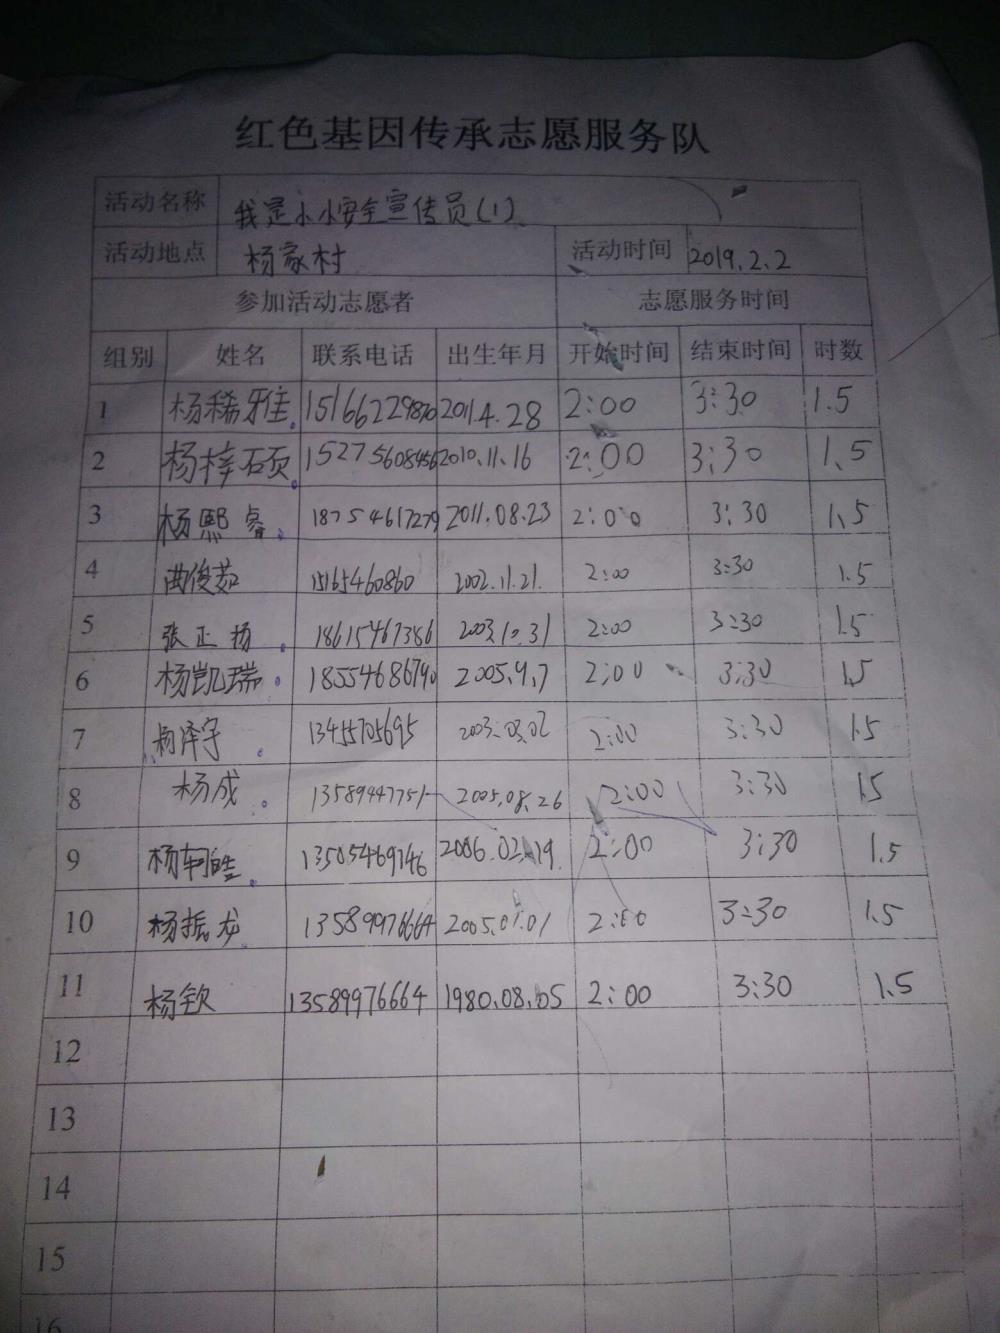 红色基因传承志愿服务队
活动名称 我是小小安全宣传员(1)
活动地点 杨家村 活动时间 2019.2.2
参加活动志愿者 志愿服务时间
组别 姓名 联系电话 出生年月 开始时间 结束时间 时数
1 杨稀雅 15166229870 2011.4.28 2:00 3:30 1.5
2 杨梓硕 15275608456 2010.11.16 2:00 3:30 1.5
3 杨熙睿 18754617279 2011.08.23 2:00 3:30 1.5
4 曲俊茹 15165460860 2002.11.21. 2:00 3:30 1.5
5 张正扬 18615467386 2003.10.31 2:00 3:30 1.5
6 杨凯瑞 18554686790 2005.9.7 2:00 3:30 1.5
7 13455705695 2003.03.02 2:00 3:30 1.5
8 杨成 13589447751 2005.08.26 2:00 3:30 1.5
9 杨轲皓 13505469746 2006.02.19. 2:00 3:30 1.5
10 杨振龙 13589976664 2005.01.01 2:00 3:30 1.5
11 杨钦 13589976664 1980.08.05 2:00 3:30 1.5
12
13
14
15
16